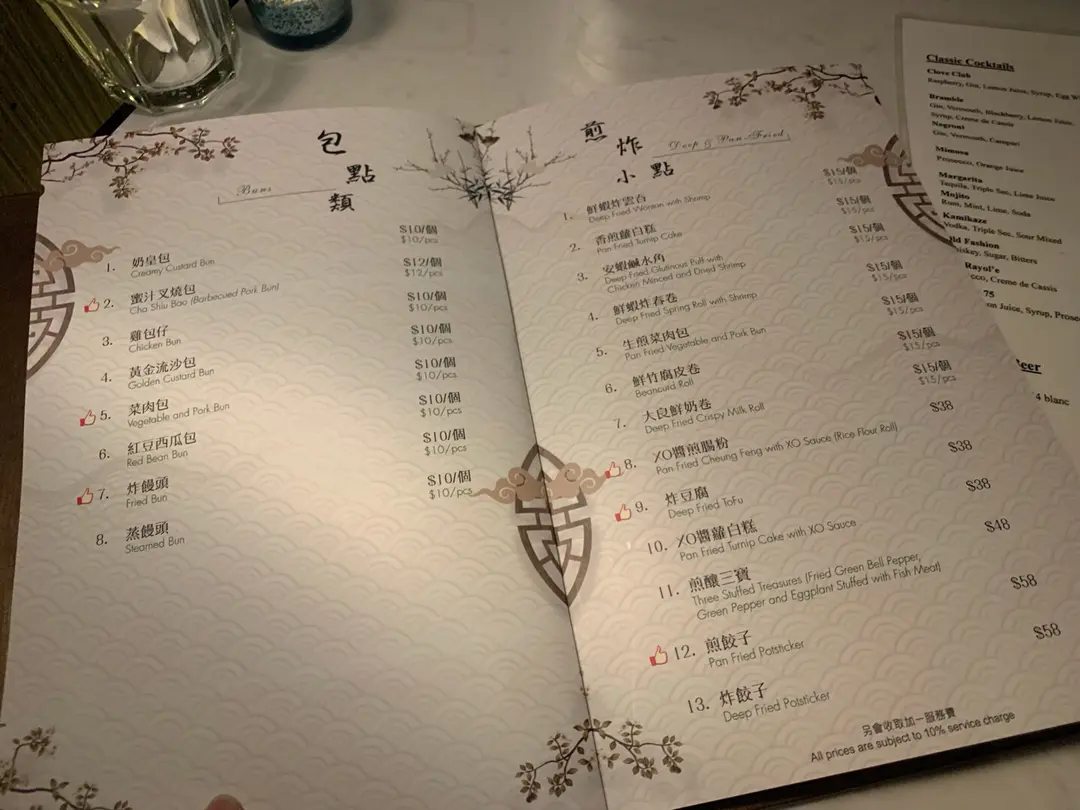 包點類
Buns
$10/個
$10/pcs
1. 奶皇包
Creamy Custard Bun
$12/個
$12/pcs
2. 蜜汁叉燒包
Cha Shiu Bao (Barbecued Pork Bun)
$10/個
$10/pcs
3. 雞包仔
Chicken Bun
$10/個
$10/pcs
4. 黃金流沙包
Golden Custard Bun
$10/個
$10/pcs
5. 菜肉包
Vegetable and Pork Bun
$10/個
$10/pcs
6. 紅豆西瓜包
Red Bean Bun
$10/個
$10/pcs
7. 炸饅頭
Fried Bun
$10/個
$10/pcs
8. 蒸饅頭
Steamed Bun
煎炸小點
Deep & Pan-Fried
$15/個
$15/pcs
1. 鮮蝦炸雲吞
Deep Fried Wonton with Shrimp
$15/個
$15/pcs
2. 香煎蘿白糕
Pan Fried Turnip Cake
$15/個
$15/pcs
3. 安蝦鹹水角
Deep Fried Glutinous Puff with
Chicken Minced and Dried Shrimp
$15/個
$15/pcs
4. 鮮蝦炸春卷
Deep Fried Spring Roll with Shrimp
$15/個
$15/pcs
5. 生煎菜肉包
Pan Fried Vegetable and Pork Bun
$15/個
$15/pcs
6. 鮮竹腐皮卷
Beancurd Roll
$15/個
$15/pcs
7. 大良鮮奶卷
Deep Fried Crispy Milk Roll
$38
8. XO醬煎腸粉
Pan Fried Cheung Feng with XO Sauce (Rice Flour Roll)
$38
9. 炸豆腐
Deep Fried ToFu
$38
10. XO醬蘿白糕
Pan Fried Turnip Cake with XO Sauce
$48
11. 煎釀三寶
Three Stuffed Treasures (Fried Green Bell Pepper,
Green Pepper and Eggplant Stuffed with Fish Meat)
$58
12. 煎餃子
Pan Fried Potsticker
$58
13. 炸餃子
Deep Fried Potsticker
另會收取加一服務費
All prices are subject to 10% service charge
Classic Cocktails
Clove Club
Raspberry, Gin, Lemon Juice, Syrup, Egg W
Bramble
Gin, Vermouth, Blackberry, Lemon Juice,
Syrup, Creme de Cassis
Negroni
Gin, Vermouth, Campari
Mimosa
Prosecco, Orange Juice
Margarita
Tequila, Triple Sec, Lime Juice
Mojito
Rum, Mint, Lime, Soda
Kamikaze
Vodka, Triple Sec, Sour Mixed
ld Fashion
iskey, Sugar, Bitters
Rayol'e
cco, Creme de Cassis
75
on Juice, Syrup, Prose
Beer
4 blanc